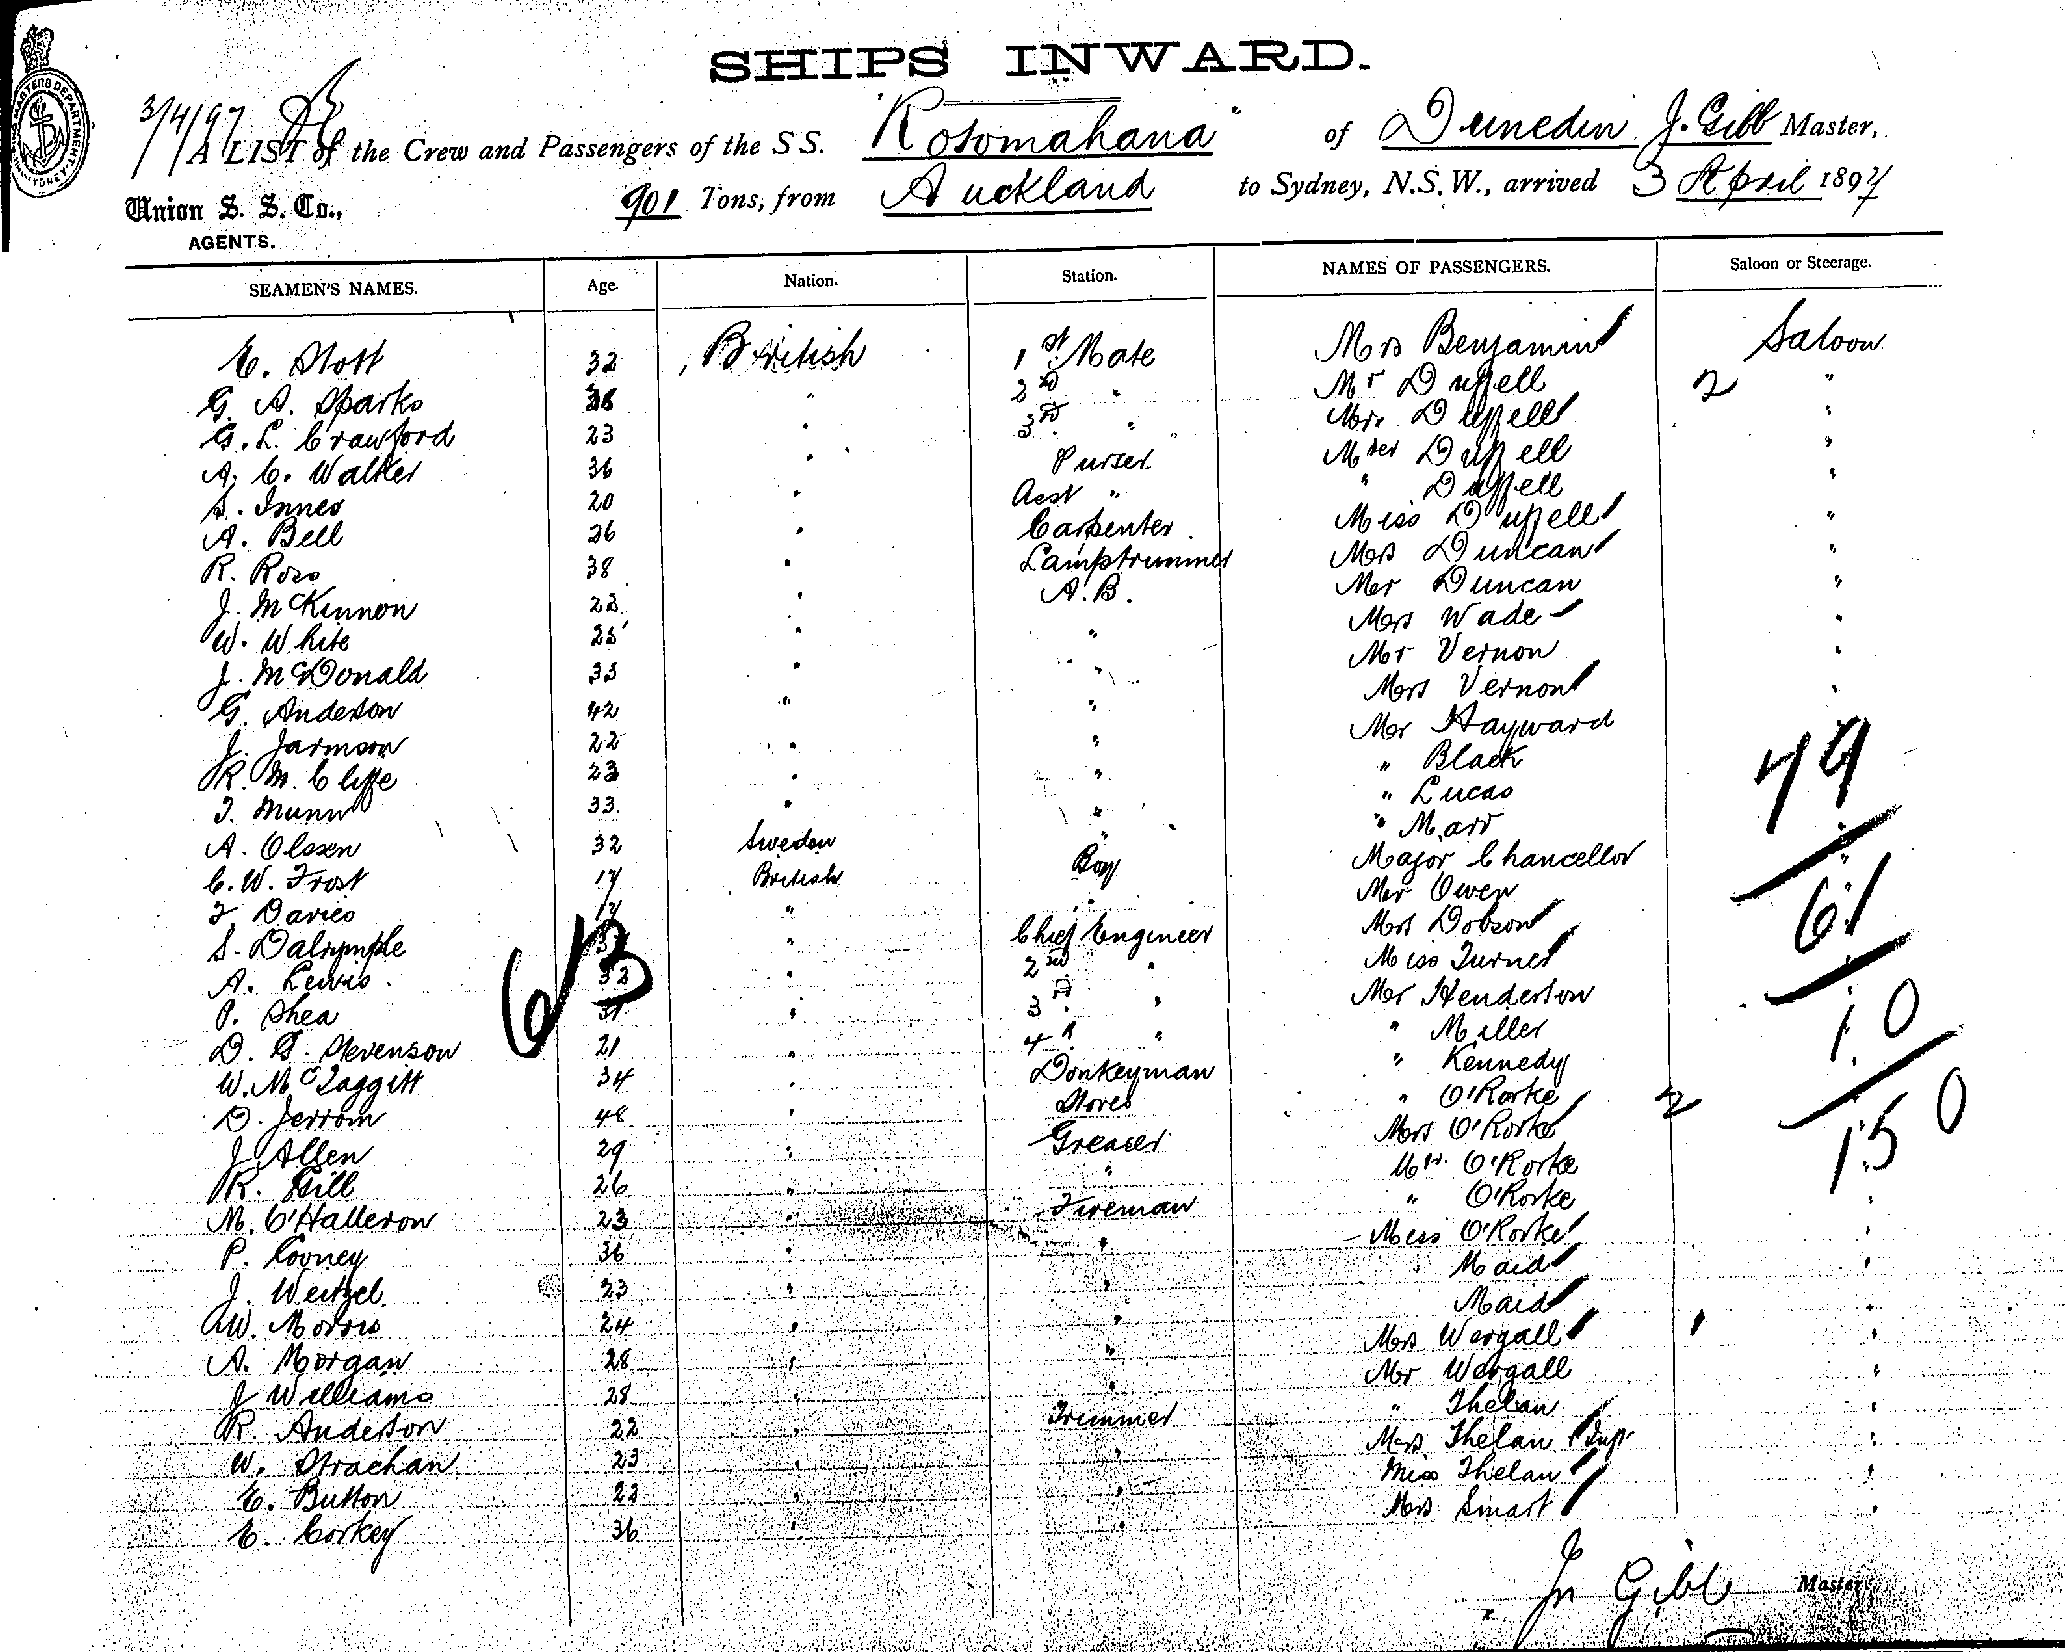 SHIPS INWARD.
3/4/97
A LIST of the Crew and Passengers of the S S. "Rotomahana" of Dunedin J. Gibb Master,
Union S. S. Co., 901 Tons, from Auckland to Sydney, N.S.W., arrived 3 April 1897
AGENTS.
SEAMEN'S NAMES. Age. Nation. Station. NAMES OF PASSENGERS. Saloon or Steerage.
E. Stott 32 British 1st Mate Mrs Benjamin Saloon
G. A. Sparks " 2nd " Mr Duffell 2 "
G. L. Crawford 23 " 3rd " Mrs Duffell "
A. C. Walker 36 " Purser Mstr Duffell "
S. Innes 20 " Asst " " Duffell "
A. Bell 26 " Carpenter Miss Duffell "
R. Ross 38 " Lamptrimmer Mrs Duncan "
J. McKinnon 23 " A.B. Mr Duncan "
W. White 25 " " Mrs Wade "
J. McDonald 33 " " Mr Vernon "
G. Anderson 42 " " Mrs Vernon "
J. Jarmson 22 " " Mr Hayward
R. M. Cliffe 23 " " " Black 79
T. Munn 33 " " " Lucas
A. Olssen 32 Sweden " " Marr "
C. W. Frost 17 British Boy Major Chancellor "
F. Davies 17 " " Mr Owen 61
S. Dalrymple " Chief Engineer Mrs Dobson
A. Lewis 63 32 " 2nd " Miss Turner "
P. Shea 31 " 3rd " Mr Henderson "
D. G. Stevenson 21 " 4th " " Miller 10
W. McTaggitt 34 " Donkeyman " Kennedy
D. Jerrom 48 " Stores " O'Rorke 2
J. Allen 29 " Greaser Mrs O'Rorke 150
R. Gill 26 " " Mr. O'Rorke "
M. O'Halleron 23 " Fireman " O'Rorke "
P. Cooney 36 " " Miss O'Rorke "
J. Weitzel 23 " " Maid "
W. Morris 24 " " Maid "
A. Morgan 28 " " Mrs Wergall "
J Williams 28 " " Mr Wergall "
R. Anderson 22 " Trimmer " Thelan "
W. Strachan 23 " " Mrs Thelan "
E. Button 22 " " Miss Thelan "
E. Corkey 36 " " Mrs Smart "
Jn Gibb Master.